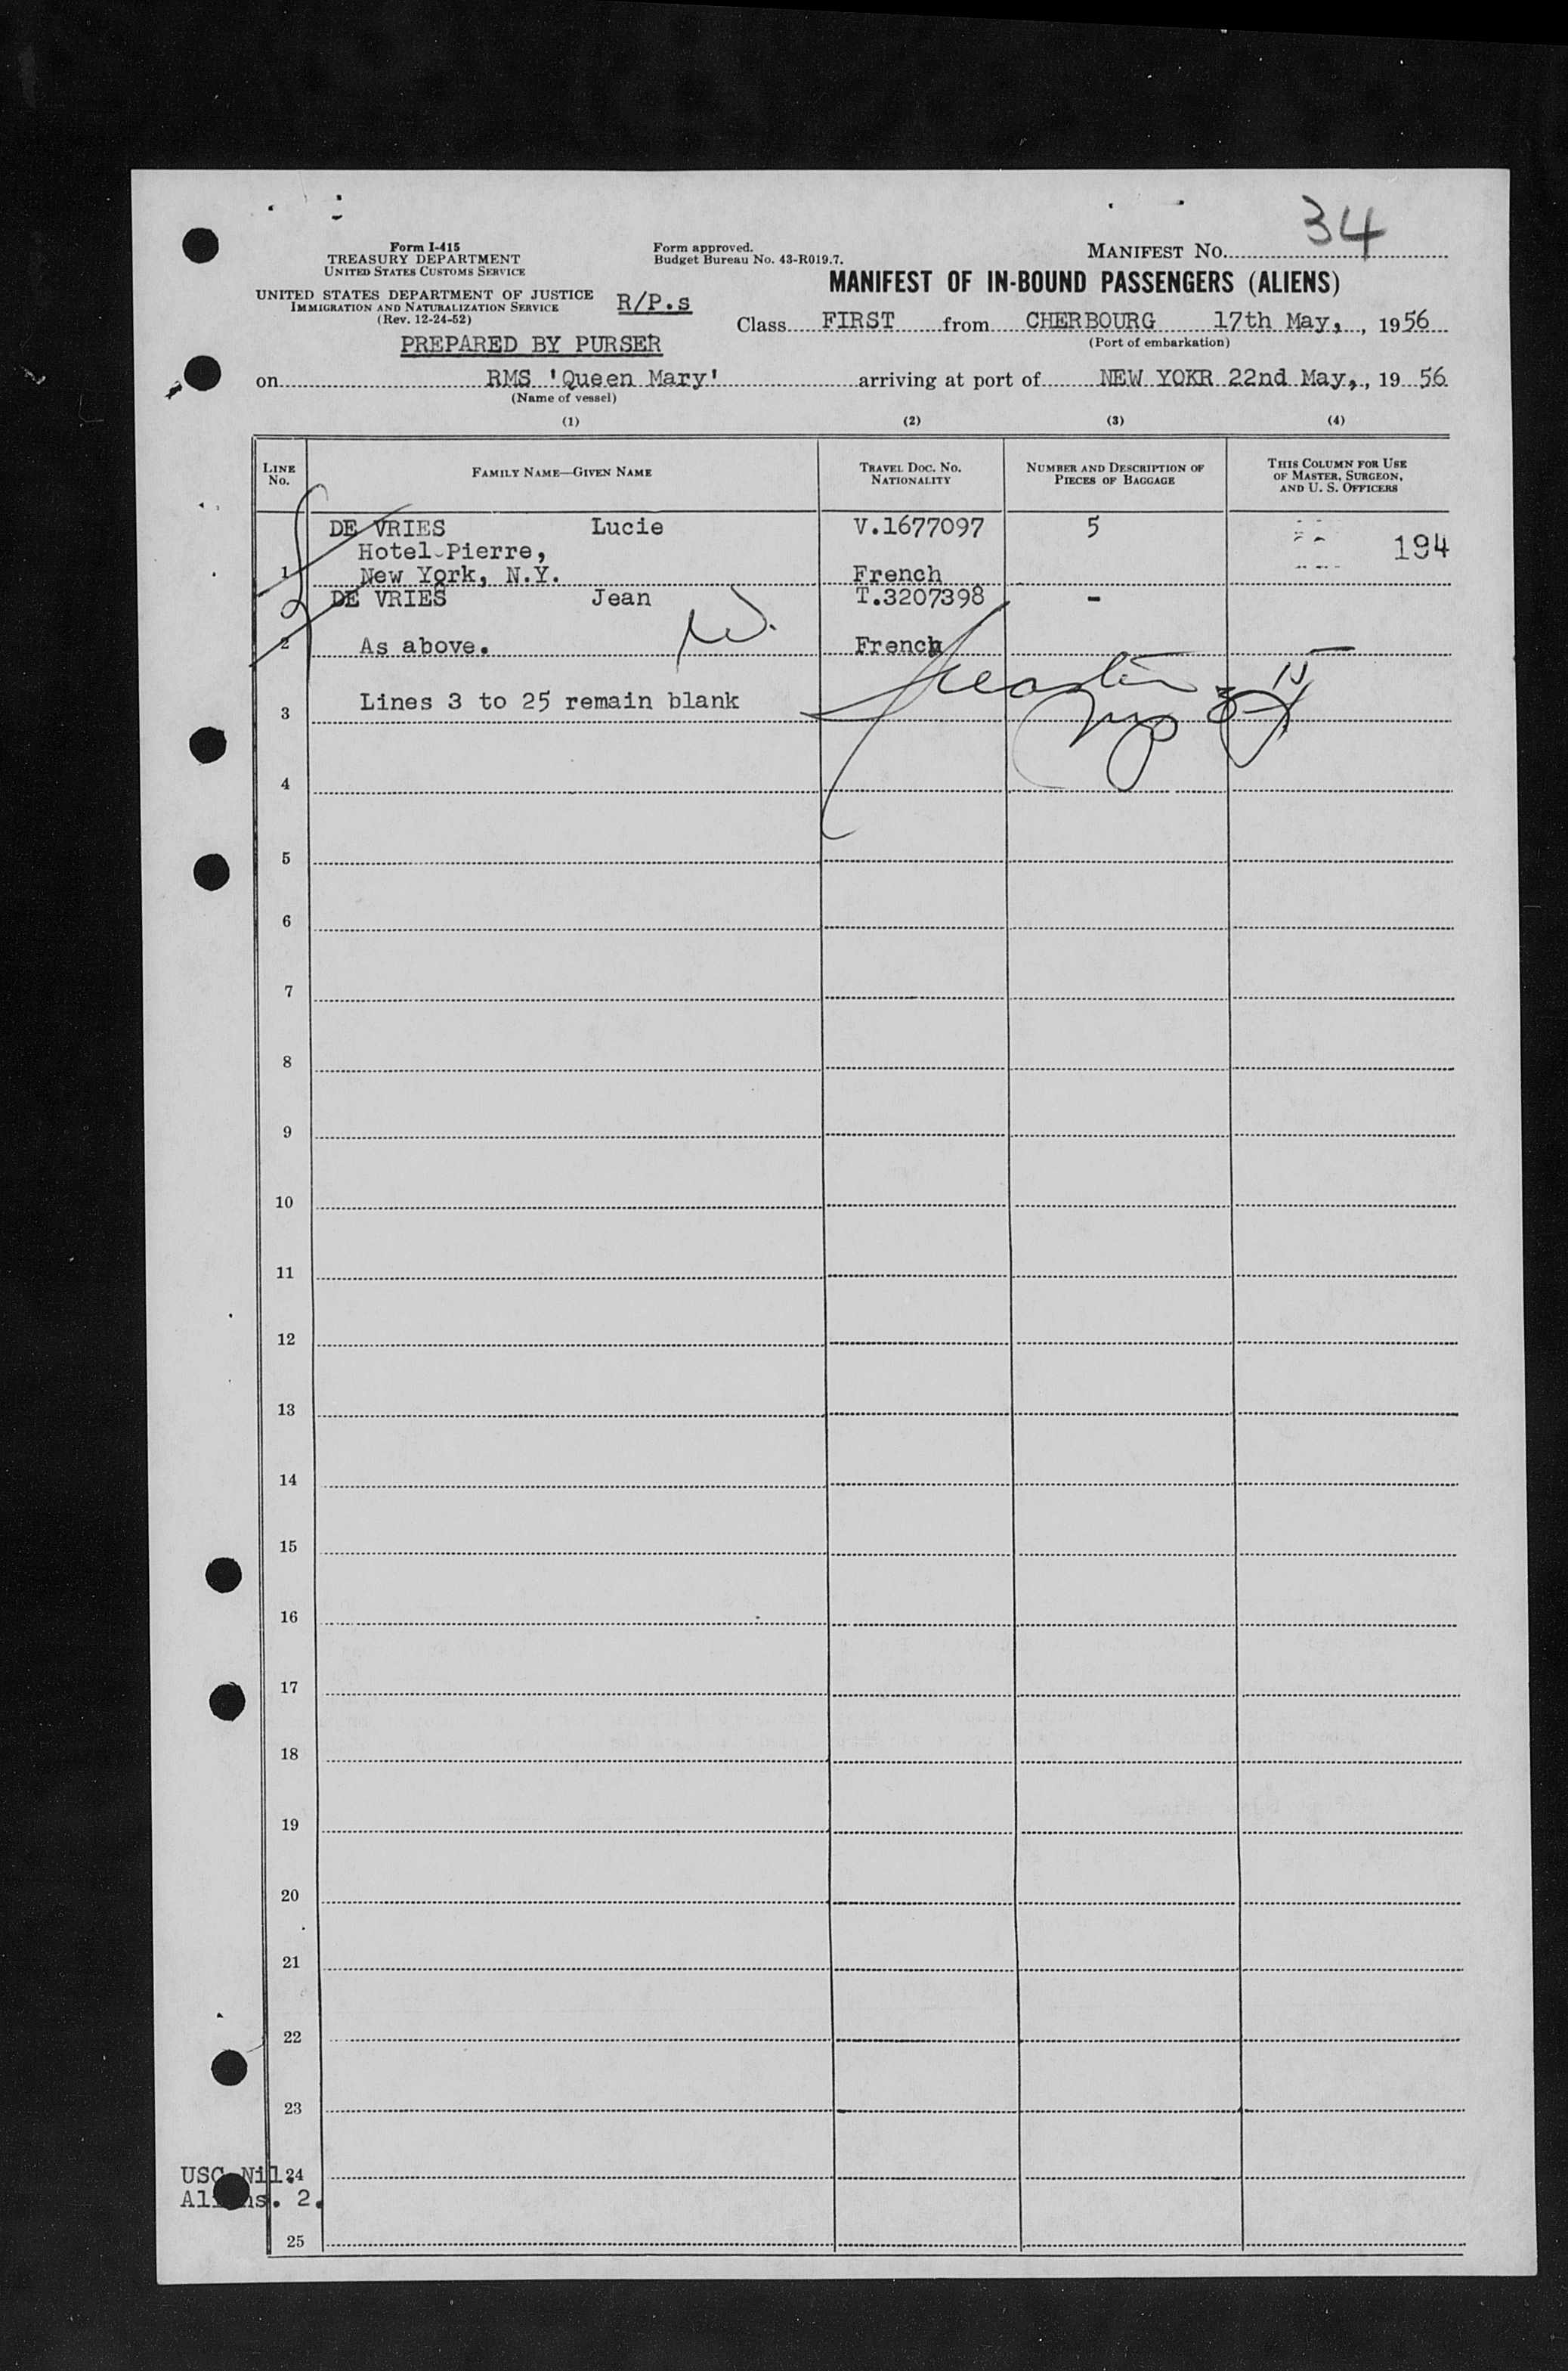 34
Form I-415
TREASURY DEPARTMENT
UNITED STATES CUSTOMS SERVICE
Form approved.
Budget Bureau No. 43-R019.7.
MANIFEST NO.
UNITED STATES DEPARTMENT OF JUSTICE
IMMIGRATION AND NATURALIZATION SERVICE
(Rev. 12-24-52)
R/P.s
MANIFEST OF IN-BOUND PASSENGERS (ALIENS)
Class FIRST from CHERBOURG 17th May, , 1956
(Port of embarkation)
PREPARED BY PURSER
on RMS 'Queen Mary' arriving at port of NEW YOKR 22nd May, , 19 56
(Name of vessel)
(1) (2) (3) (4)
LINE NO. FAMILY NAME—GIVEN NAME TRAVEL DOC. NO. NATIONALITY NUMBER AND DESCRIPTION OF PIECES OF BAGGAGE THIS COLUMN FOR USE OF MASTER, SURGEON, AND U. S. OFFICERS
DE VRIES Lucie V.1677097 5 194
Hotel Pierre,
1 New York, N.Y. French
DE VRIES Jean T.3207398 -
2 As above. French
3 Lines 3 to 25 remain blank
4
5
6
7
8
9
10
11
12
13
14
15
16
17
18
19
20
21
22
23
USC Nil. 24
Aliens. 2.
25